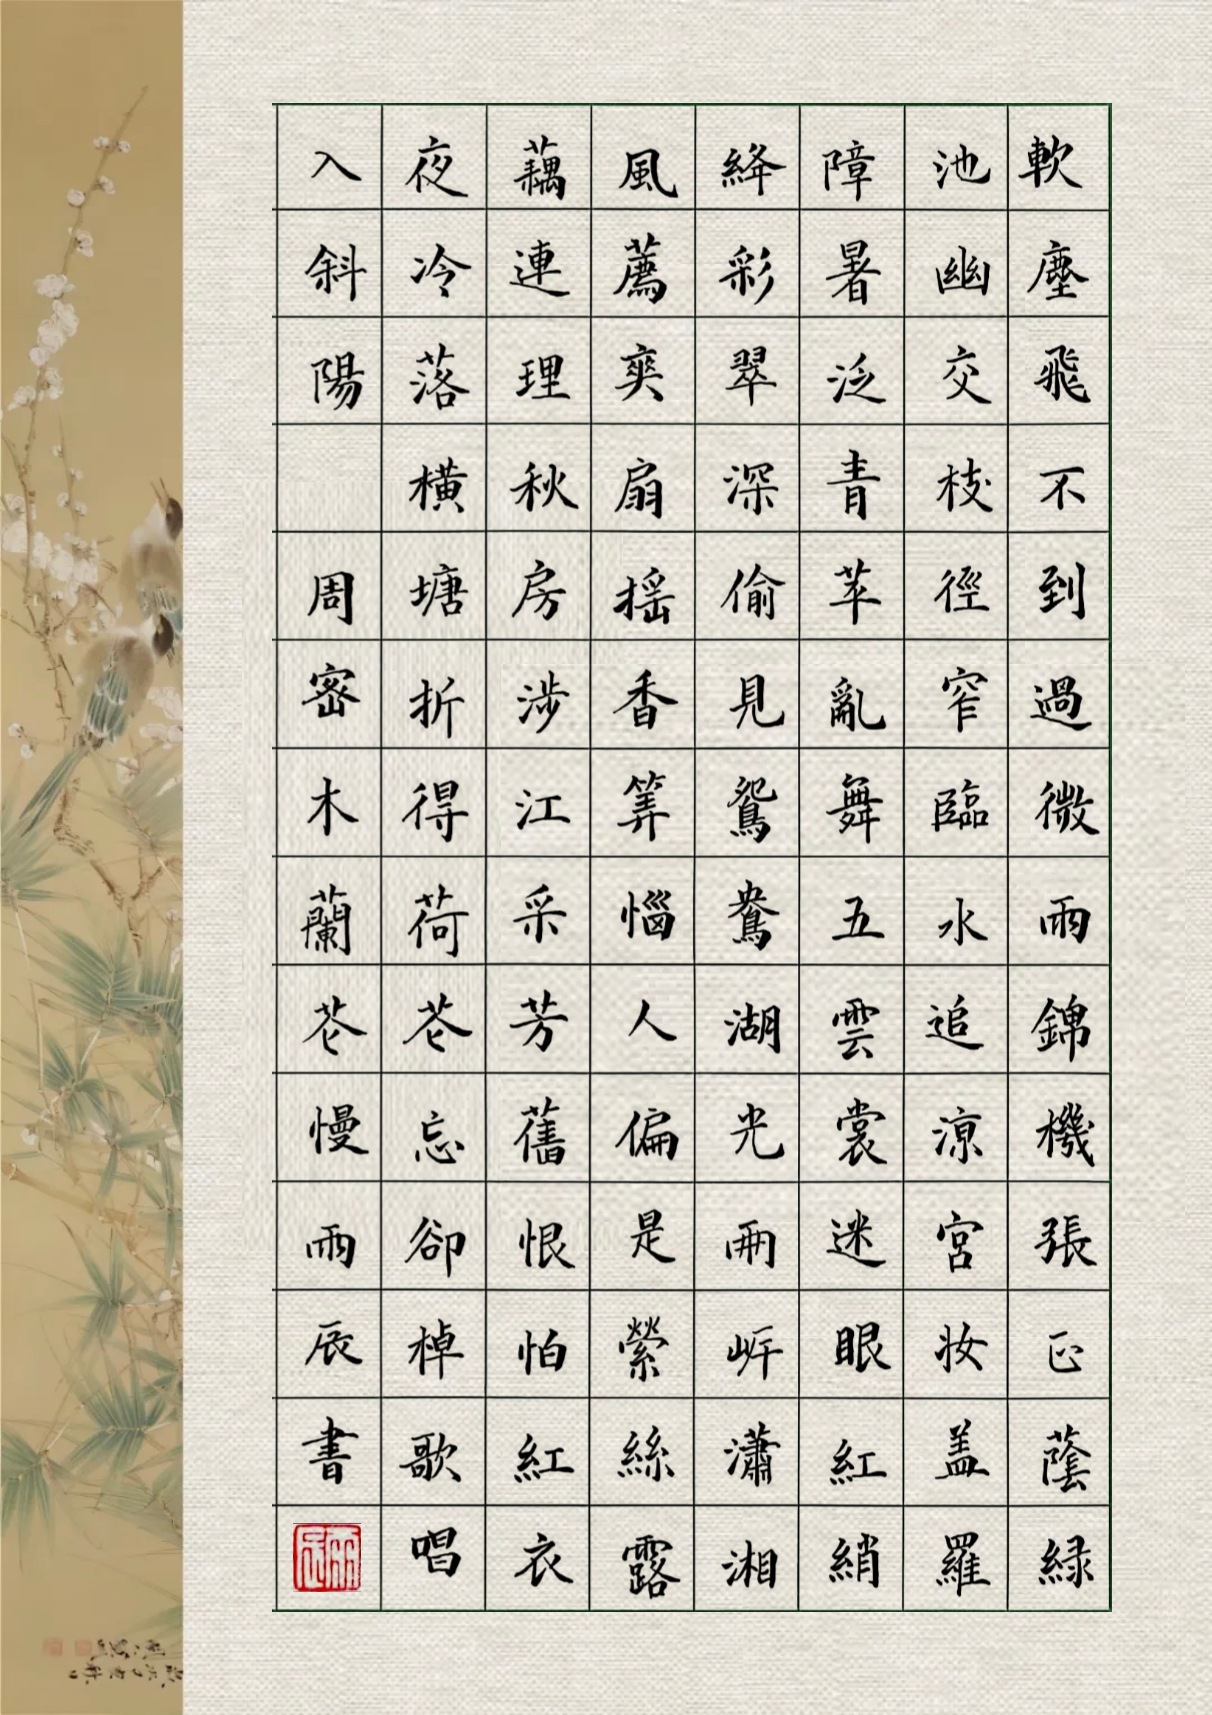 軟塵飛不到過微雨錦機張正蔭綠
池幽交枝徑窄臨水追涼宮妝盖羅
障暑泛青苹亂舞五雲裳迷眼紅綃
絳彩翠深偷見鴛鴦湖光兩岸瀟湘
風薦爽扇搖香算惱人偏是縈絲露
藕連理秋房涉江采芳舊恨怕紅衣
夜冷落橫塘折得荷花忘卻棹歌唱
入斜陽
周密木蘭花慢雨辰書
雨辰